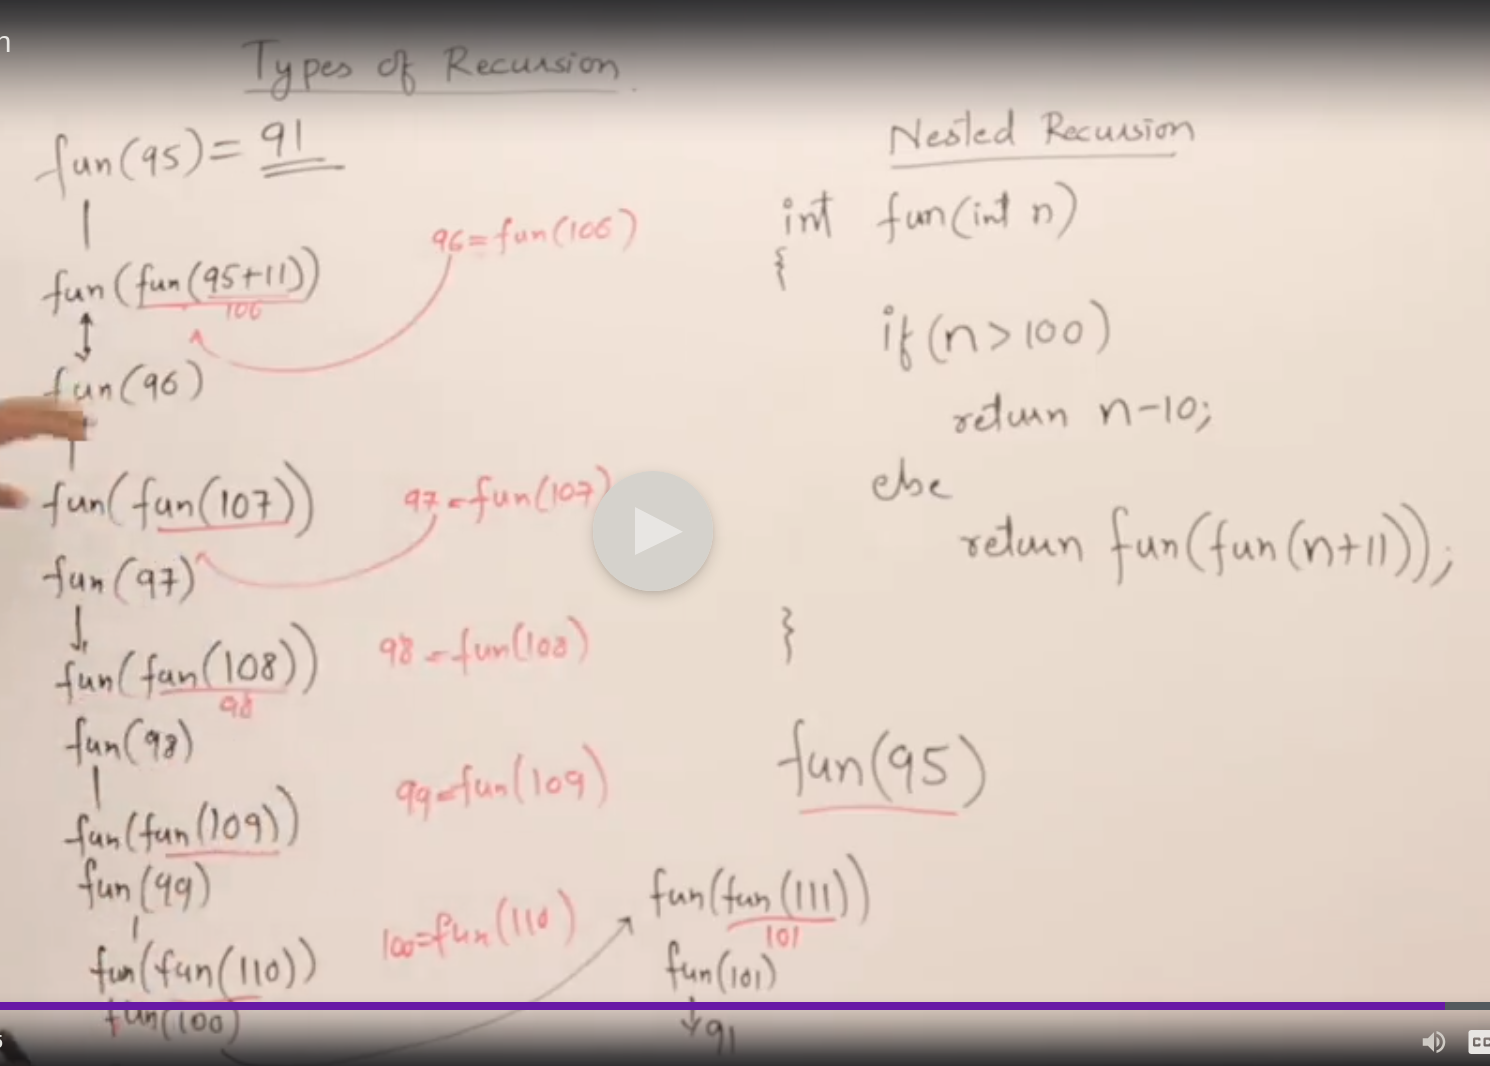 n
Types of Recursion.
fun(95) = 91
fun(fun(95+11))
106
96 = fun(106)
fun(96)
fun(fun(107))
97 = fun(107)
fun(97)
fun(fun(108))
98
98 = fun(108)
fun(98)
fun(fun(109))
99 = fun(109)
fun(99)
fun(fun(110))
100 = fun(110)
fun(100)
Nested Recursion
int fun(int n)
{
if(n>100)
return n-10;
else
return fun(fun(n+11));
}
fun(95)
fun(fun(111))
101
fun(101)
91